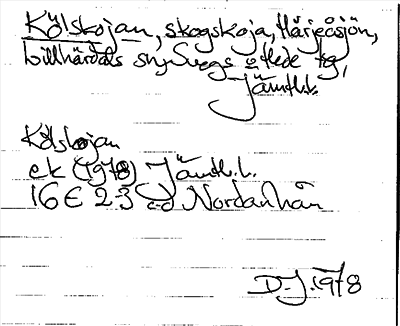 Kölskojan, skogskoja, Härjeåsjön,
Lillhärdals sn, Svegs o Hede tg,
Jämtl.l.
Kölskojan
ek (1978) Jämtl.l.
16 E 2-3 c-d Nordanhån
D-J 1978